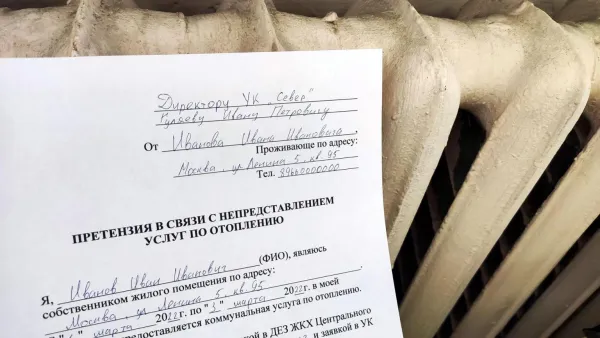 Директору УК "Север"
Гуляеву Ивану Петровичу
От Иванова Ивана Ивановича,
Проживающе по адресу:
Москва, ул Ленина 5, кв 95
Тел. 89660000000
ПРЕТЕНЗИЯ В СВЯЗИ С НЕПРЕДСТАВЛЕНИЕМ
УСЛУГ ПО ОТОПЛЕНИЮ
Я, Иванов Иван Иванович (ФИО), являюсь
собственником жилого помещения по адресу:
Москва, ул Ленина 5, кв. 95
марта 2022 г. по "5" марта 2022 г. в моей
предоставляется коммунальная услуга по отоплению.
й в ДЕЗ ЖКХ Центрального
и заявкой в УК